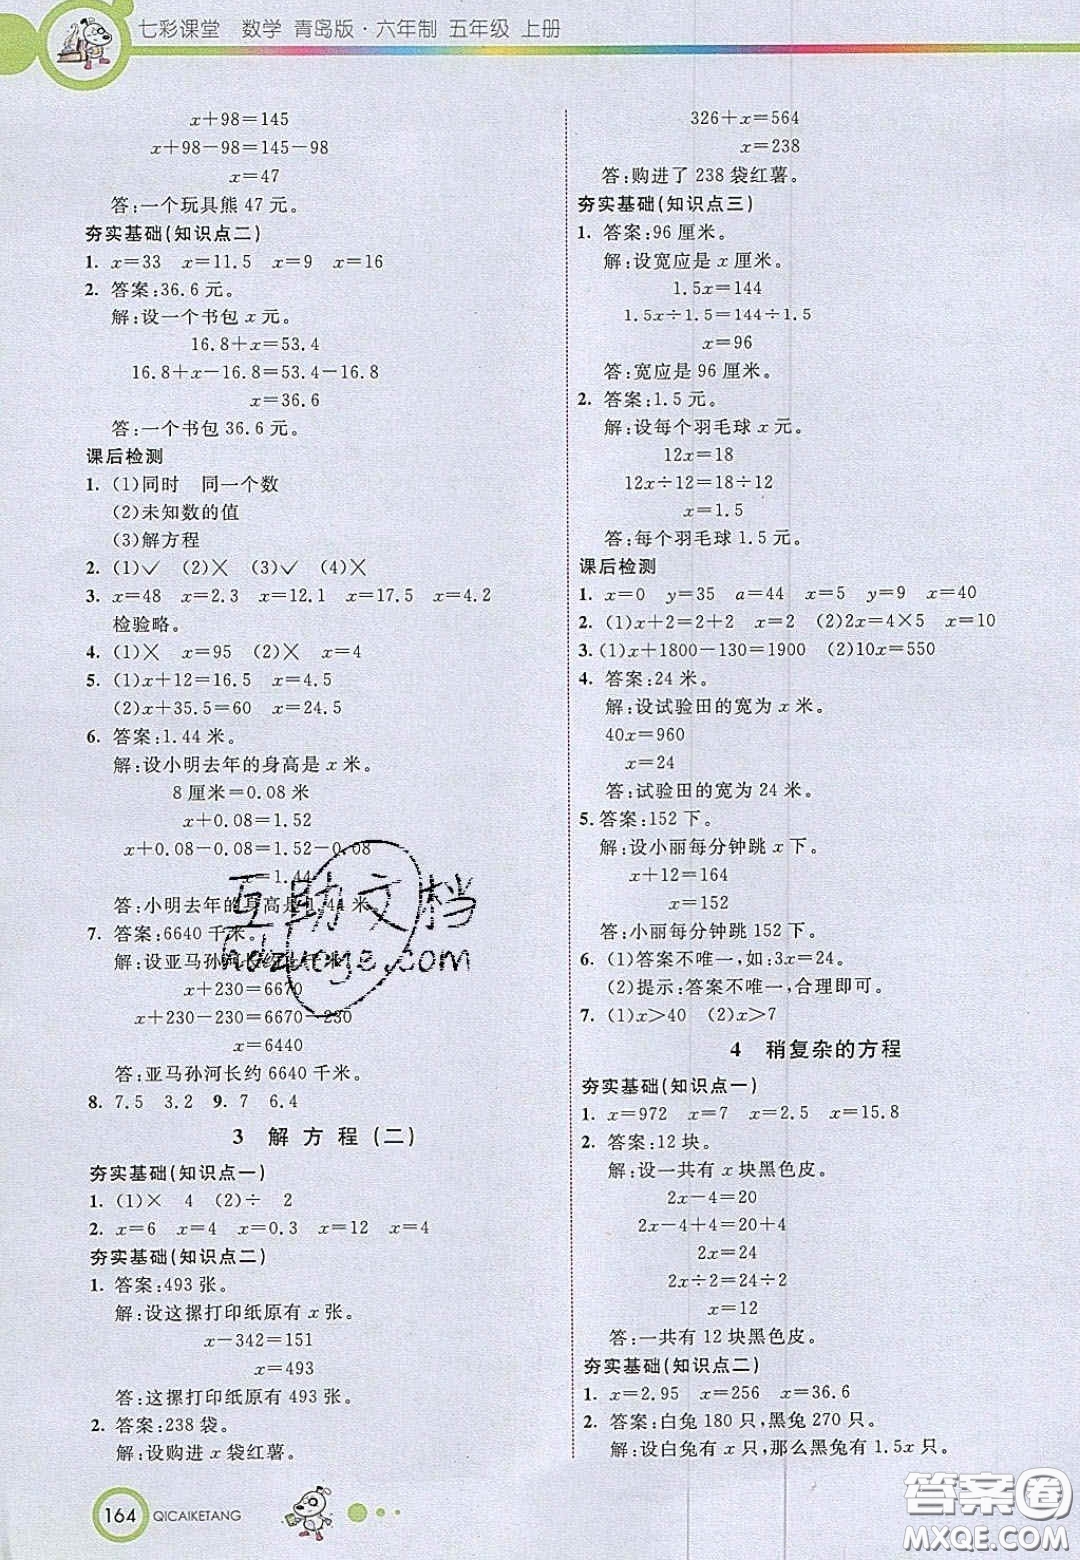 七彩课堂 数学 青岛版·六年制 五年级 上册
x+98=145
x+98-98=145-98
x=47
答:一个玩具熊 47 元。
夯实基础(知识点二)
1. x=33 x=11.5 x=9 x=16
2. 答案:36.6 元。
解:设一个书包 x 元。
16.8+x=53.4
16.8+x-16.8=53.4-16.8
x=36.6
答:一个书包 36.6 元。
课后检测
1. (1)同时 同一个数
(2)未知数的值
(3)解方程
2. (1)✓ (2)╳ (3)✓ (4)╳
3. x=48 x=2.3 x=12.1 x=17.5 x=4.2
检验略。
4. (1)╳ x=95 (2)╳ x=4
5. (1)x+12=16.5 x=4.5
(2)x+35.5=60 x=24.5
6. 答案:1.44 米。
解:设小明去年的身高是 x 米。
8 厘米=0.08 米
x+0.08=1.52
x+0.08-0.08=1.52-0.08
x=1.44
答:小明去年的身高是 1.44 米。
7. 答案:6640 千米。
解:设亚马孙河长约 x 千米。
x+230=6670
x+230-230=6670-230
x=6440
答:亚马孙河长约 6640 千米。
8. 7.5 3.2 9. 7 6.4
3 解方程(二)
夯实基础(知识点一)
1. (1)× 4 (2)÷ 2
2. x=6 x=4 x=0.3 x=12 x=4
夯实基础(知识点二)
1. 答案:493 张。
解:设这摞打印纸原有 x 张。
x-342=151
x=493
答:这摞打印纸原有 493 张。
2. 答案:238 袋。
解:设购进 x 袋红薯。
326+x=564
x=238
答:购进了 238 袋红薯。
夯实基础(知识点三)
1. 答案:96 厘米。
解:设宽应是 x 厘米。
1.5x=144
1.5x÷1.5=144÷1.5
x=96
答:宽应是 96 厘米。
2. 答案:1.5 元。
解:设每个羽毛球 x 元。
12x=18
12x÷12=18÷12
x=1.5
答:每个羽毛球 1.5 元。
课后检测
1. x=0 y=35 a=44 x=5 y=9 x=40
2. (1)x+2=2+2 x=2 (2)2x=4×5 x=10
3. (1)x+1800-130=1900 (2)10x=550
4. 答案:24 米。
解:设试验田的宽为 x 米。
40x=960
x=24
答:试验田的宽为 24 米。
5. 答案:152 下。
解:设小丽每分钟跳 x 下。
x+12=164
x=152
答:小丽每分钟跳 152 下。
6. (1)答案不唯一,如:3x=24。
(2)提示:答案不唯一,合理即可。
7. (1)x>40 (2)x>7
4 稍复杂的方程
夯实基础(知识点一)
1. x=972 x=7 x=2.5 x=15.8
2. 答案:12 块。
解:设一共有 x 块黑色皮。
2x-4=20
2x-4+4=20+4
2x=24
2x÷2=24÷2
x=12
答:一共有 12 块黑色皮。
夯实基础(知识点二)
1. x=2.95 x=256 x=36.6
2. 答案:白兔 180 只,黑兔 270 只。
解:设白兔有 x 只,那么黑兔有 1.5x 只。
互助文档
hdzuoye.com
164 QICAIKETANG
答案圈
MXQE.COM